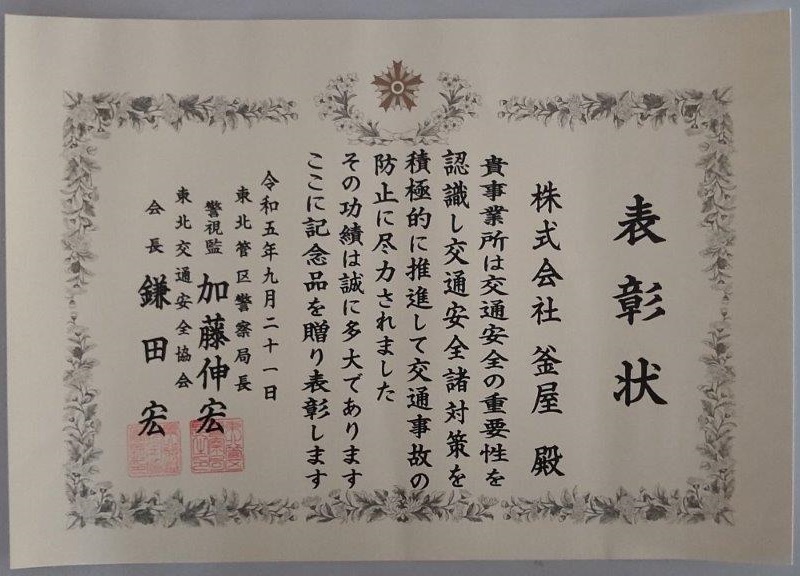 表彰状
株式会社 釜屋 殿
貴事業所は交通安全の重要性を
認識し交通安全諸対策を
積極的に推進して交通事故の
防止に尽力されました
その功績は誠に多大であります
ここに記念品を贈り表彰します
令和五年九月二十一日
東北管区警察局長
警視監 加藤伸宏
東北交通安全協会
会長 鎌田宏